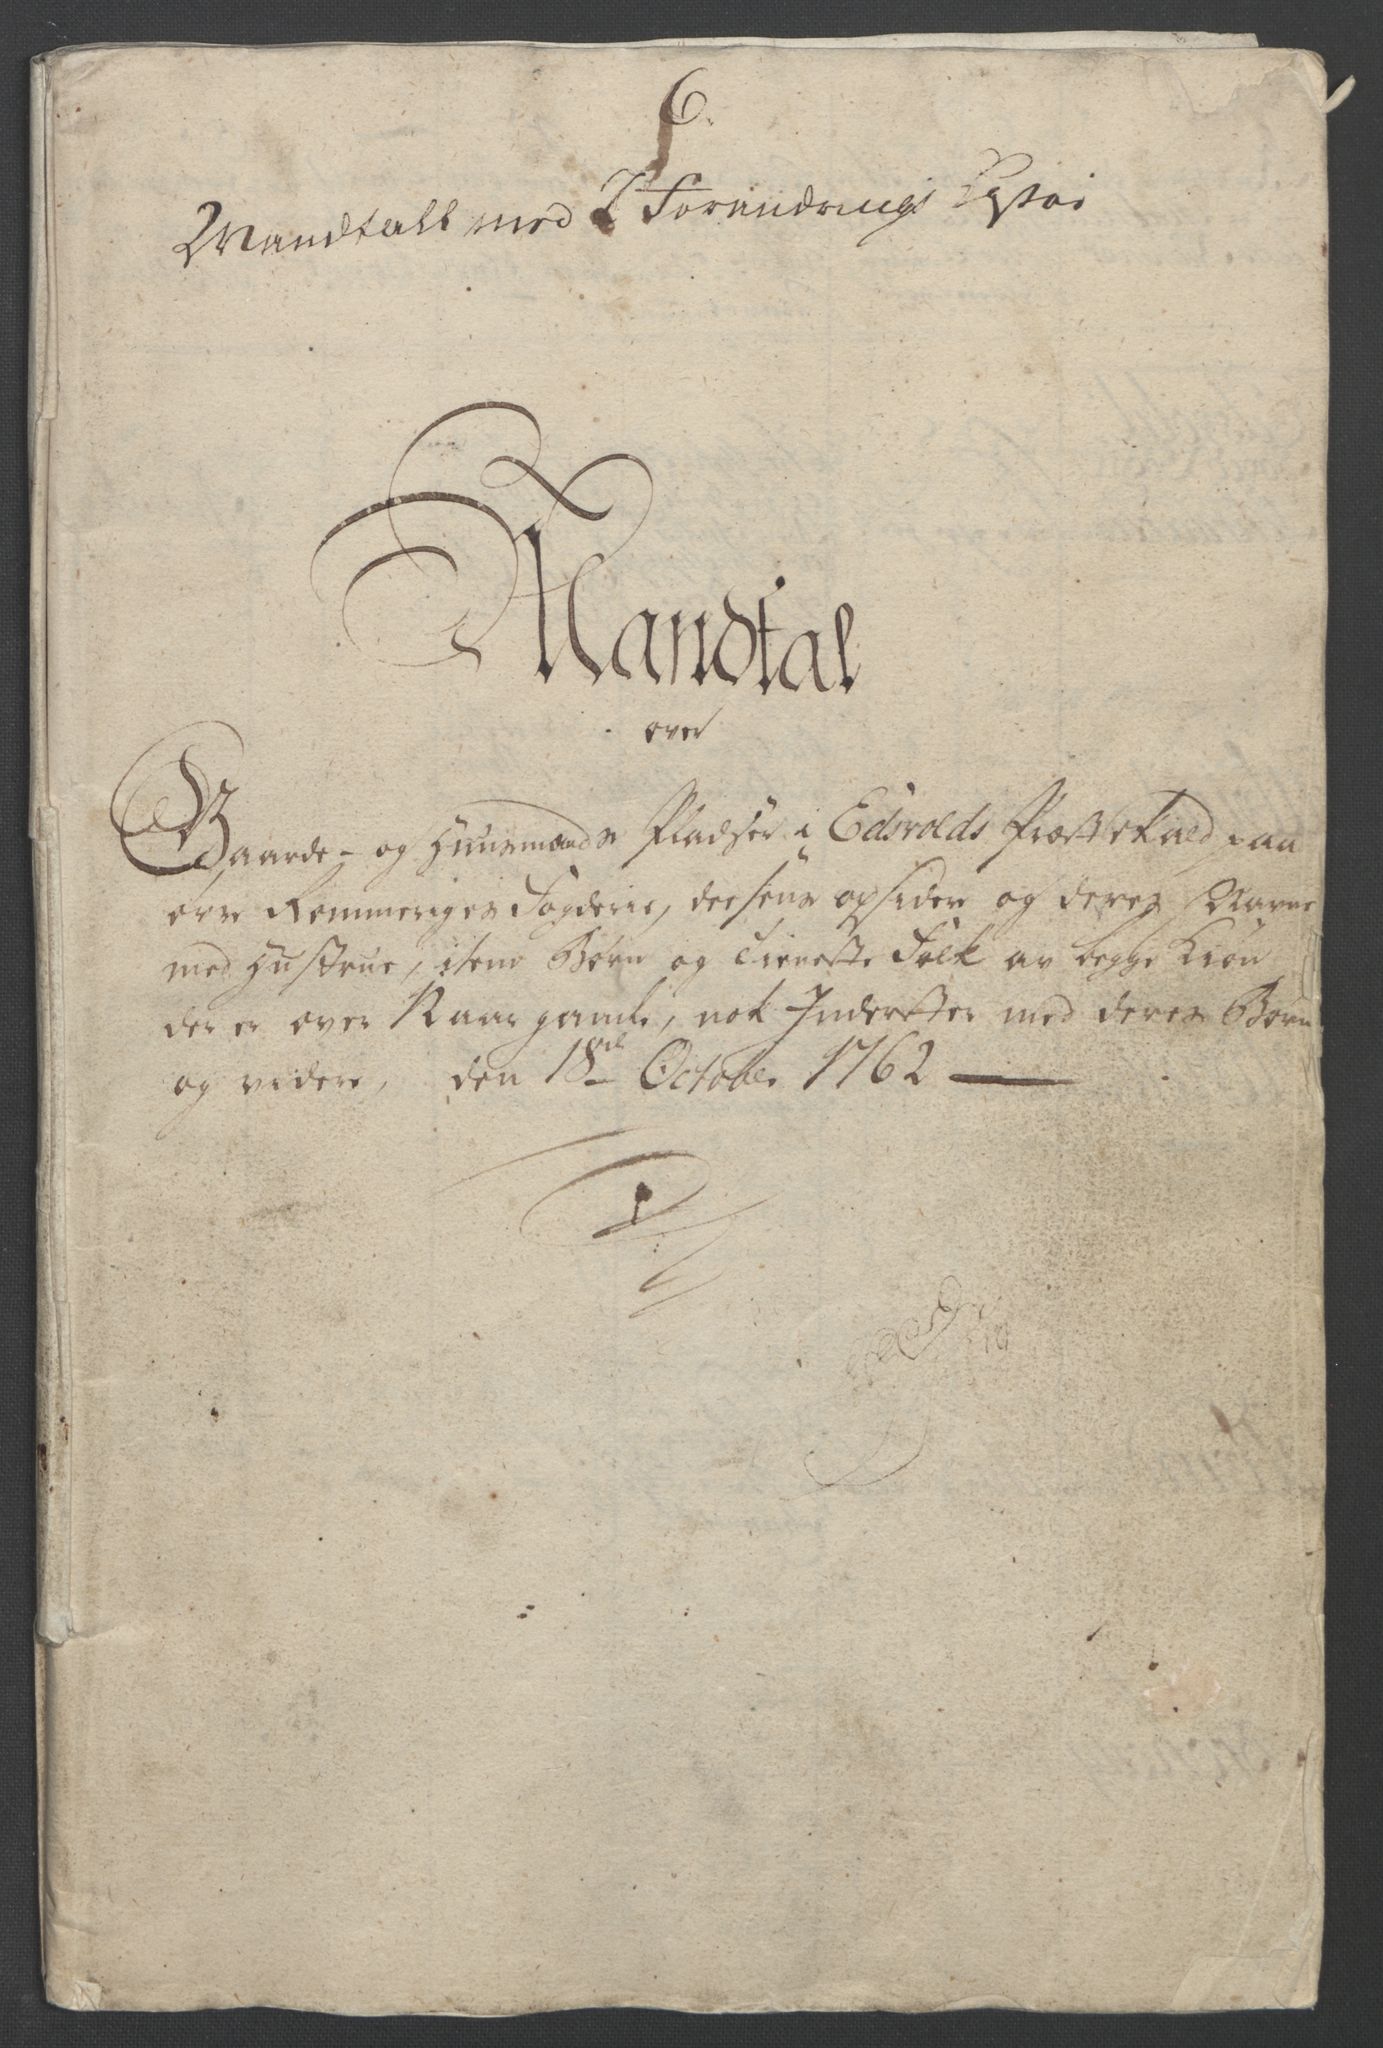 6.
Mandtall med 2 Forandrings
Mandtal
over
Gaarde- og Huusmænds Pladser i Edsvolds Præste Kald paa
øvre Rommeriges Fogderie, deesens opsidere og deres Navne
med Hustrue, item Børn og Tieneste Folk av begge Kiøn
der er over 12 Aar gamle, nok Inderster med deres Børn
og videre, den 18de October 1762